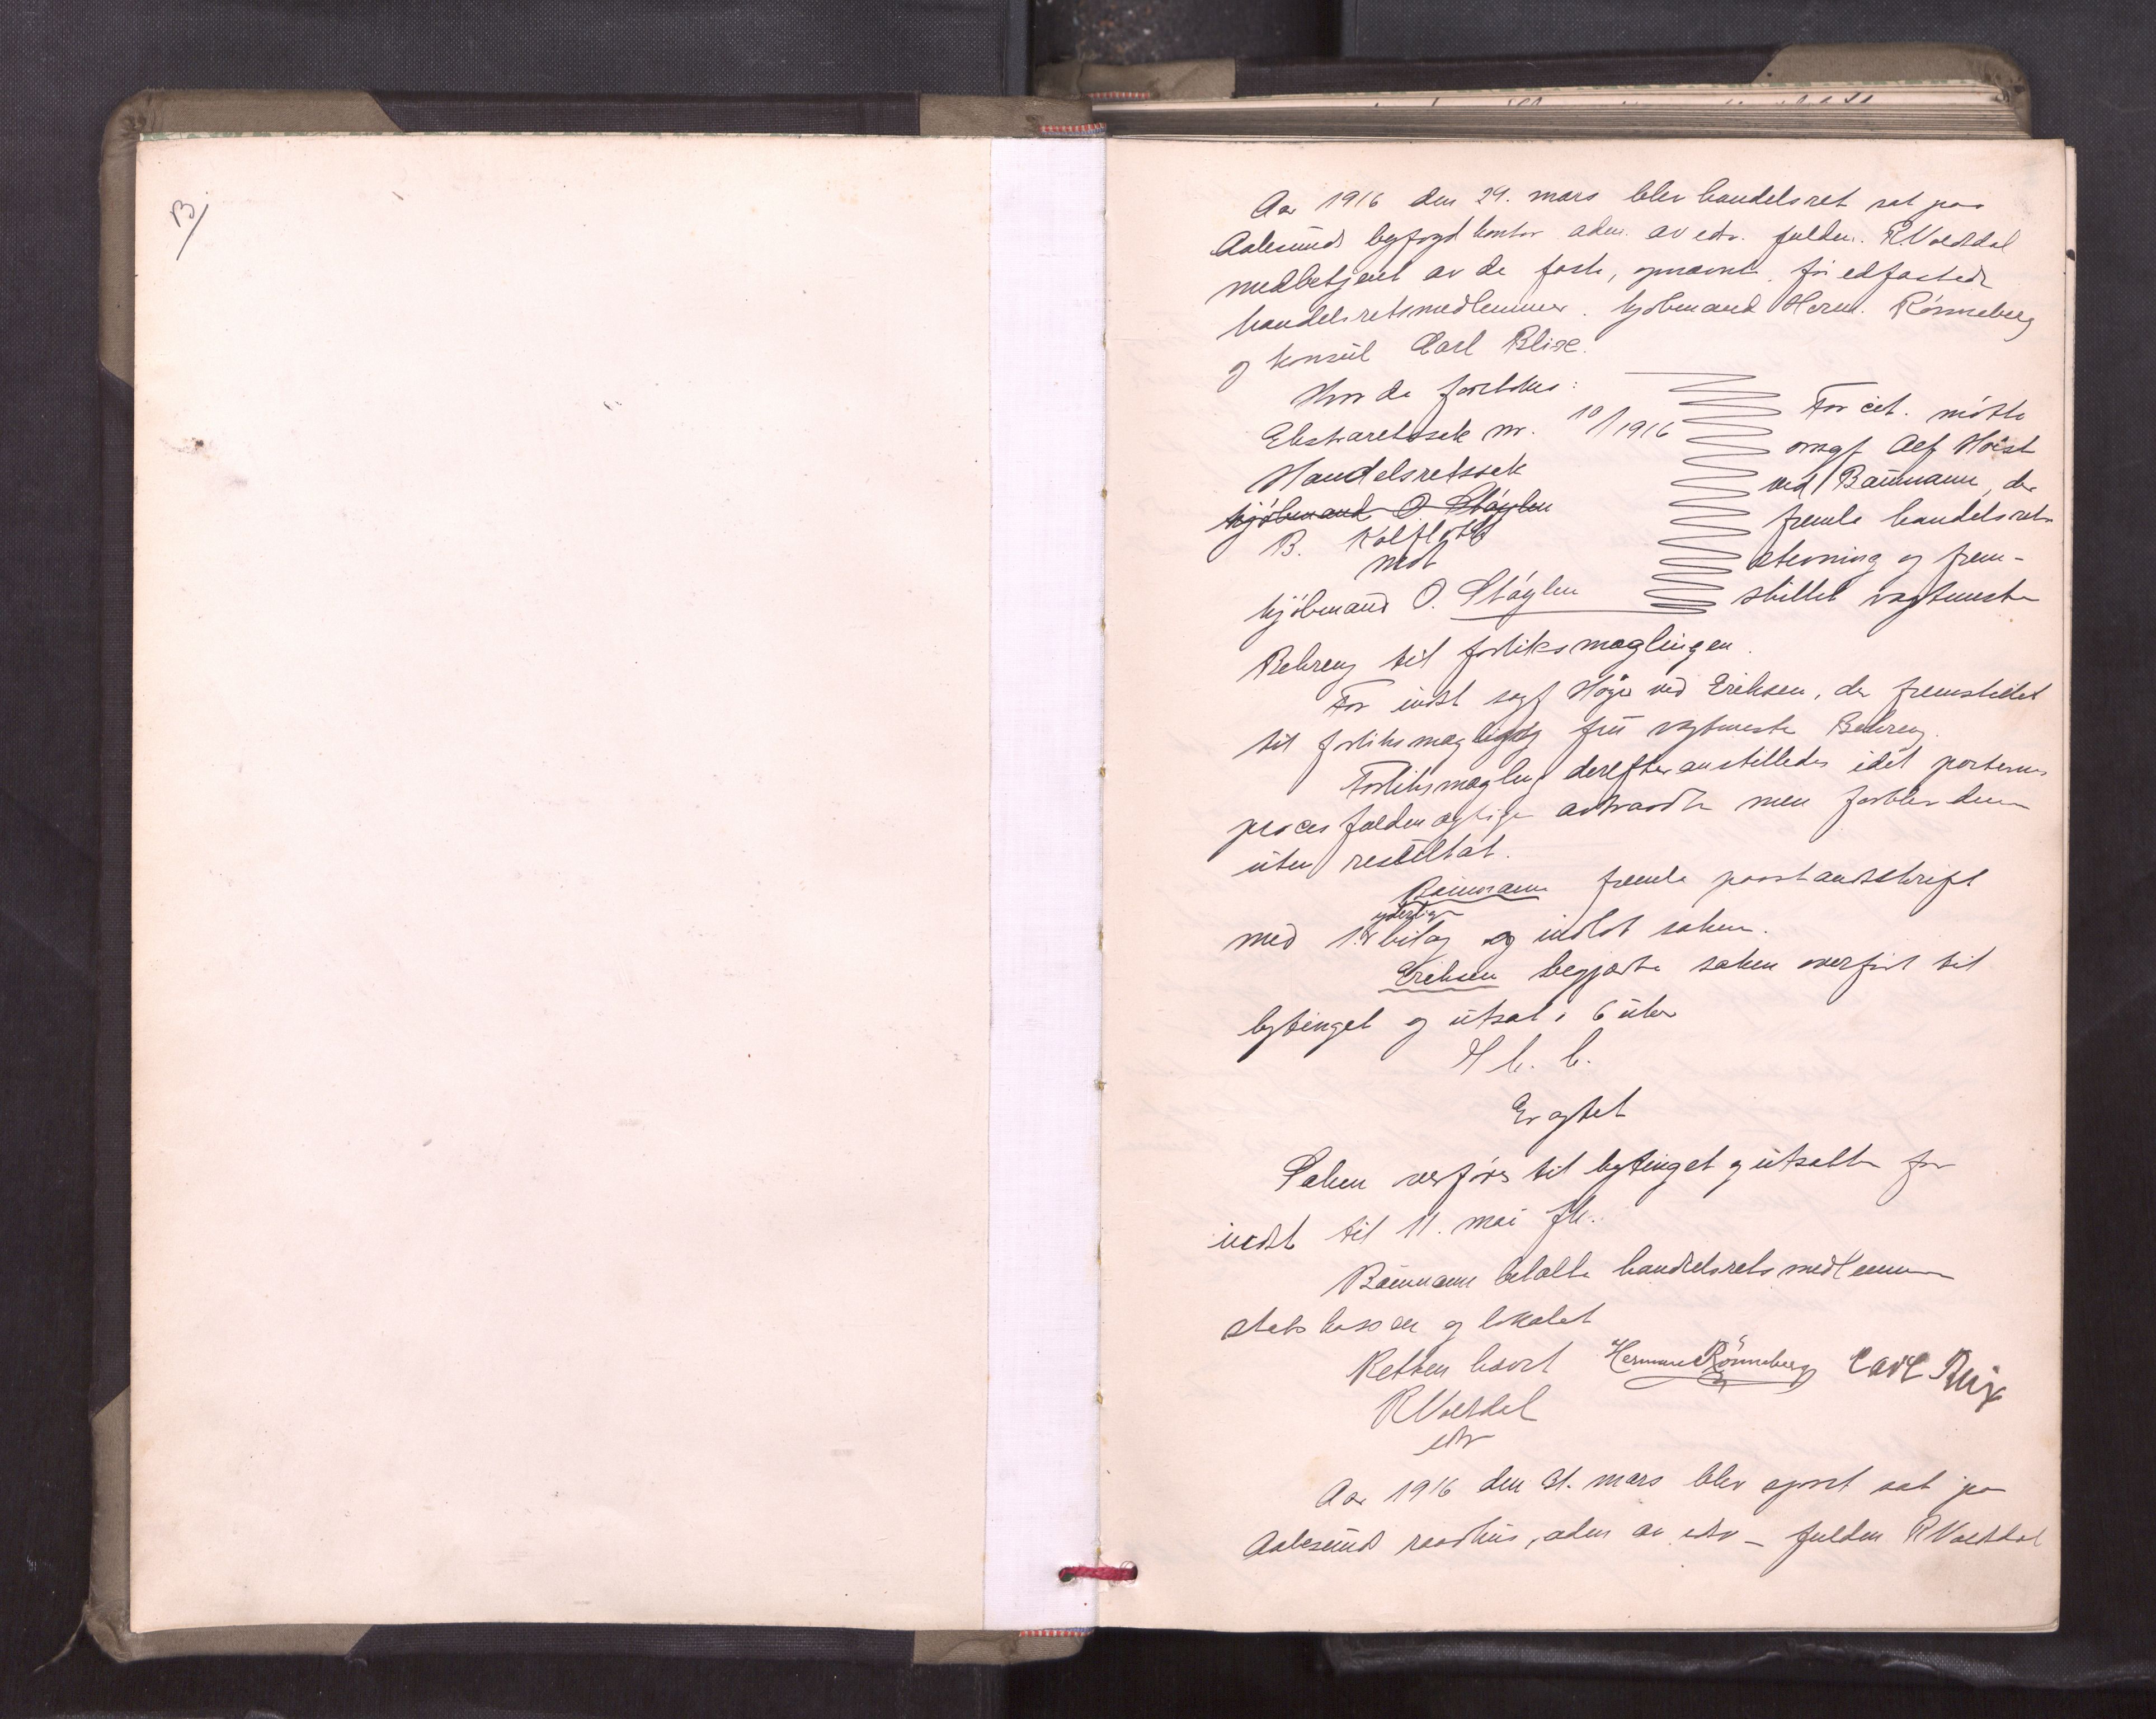 B/
Aar 1916 den 29. mars blev handelsret sat paa
Aalesunds byfogdkontor adm. av edv. fuldm. R Voldsdal
medbetjent av de faste, opnævnte, før edfæstede
handelsretsmedlemmer. kjøbmand Herm. Rønneberg
og konsul Carl Blixe.
Hvor da foretokes:
Ekstraretssak nr. 10/1916
Handelsretssak
kjøbmand O Støylen
B. Kolflaath
mot
kjøbmand O. Støylen
For cit. møtte
ovsgf Alf Høist
ved Baumann, der
fremla handelsrets
stevning og frem-
stillet vagtmester
Behreng til forliksmæglingen.
For indst sagf Høye ved Eriksen, der fremstillet
til forliksmægling fru vagtmester Behreng.
Forliksmægling derefter anstilledes idet parternes
procesfuldmægtige avtraadte men forblev den
uten resultat.
Baumann fremla paastandsskrift
med 1 yderligere bilag og indlot saken.
Eriksen begjærte saken overført til
bytinget og utsat i 6 uker
S b. b.
Eragtet
Saken overføres til bytinget og utsættes for
indst til 11. mai fk.
Baumann betalte handelsretsmedlemmene
statskassen og lokalet
Retten hævet Herman Rønneberg Carl Blix
R Voldsdal
edv
Aar 1916 den 31. mars blev apart sat paa
Aalesunds raadhus, adm av edv - fuldm R Voldsdal